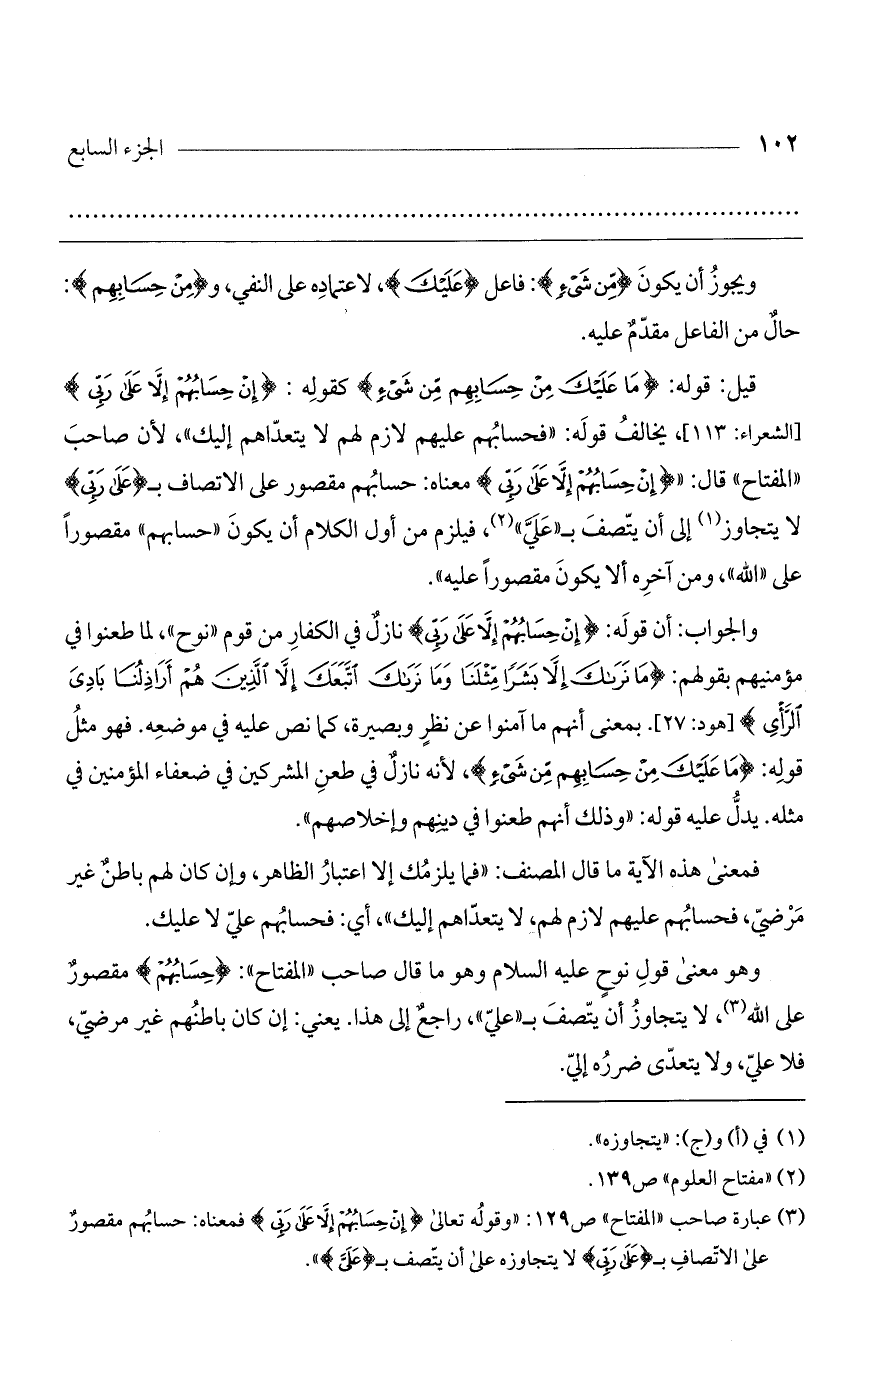 ١٠٢ الجزء السابع
ويجوزُ أن يكونَ ﴿مِّن شَىْءٍ﴾: فاعل ﴿عَلَيْكَ﴾، لاعتمادِه على النفي، و﴿مِنْ حِسَابِهِم﴾:
حالٌ من الفاعل مقدّمٌ عليه.
قيل: قوله: ﴿مَا عَلَيْكَ مِنْ حِسَابِهِم مِّن شَىْءٍ﴾ كقولِه : ﴿إِنْ حِسَابُهُمْ إِلَّا عَلَىٰ رَبِّى﴾
[الشعراء: ١١٣]، يخالفُ قولَه: «فحسابُهم عليهم لازم لهم لا يتعدّاهم إليك»، لأن صاحبَ
«المفتاح» قال: «﴿إِنْ حِسَابُهُمْ إِلَّا عَلَىٰ رَبِّى﴾ معناه: حسابُهم مقصور على الاتصاف بـ﴿عَلَىٰ رَبِّى﴾
لا يتجاوز(١) إلى أن يتّصفَ بـ«عَلَيَّ»(٢)، فيلزم من أول الكلام أن يكونَ «حسابهم» مقصوراً
على «الله»، ومن آخرِه ألا يكونَ مقصوراً عليه».
والجواب: أن قولَه: ﴿إِنْ حِسَابُهُمْ إِلَّا عَلَىٰ رَبِّى﴾ نازلٌ في الكفارِ من قوم «نوح»، لما طعنوا في
مؤمنيهم بقولهم: ﴿مَا نَرَىٰكَ إِلَّا بَشَرًا مِّثْلَنَا وَمَا نَرَىٰكَ ٱتَّبَعَكَ إِلَّا ٱلَّذِينَ هُمْ أَرَاذِلُنَا بَادِىَ
ٱلرَّأْىِ﴾ [هود: ٢٧]. بمعنى أنهم ما آمنوا عن نظرٍ وبصيرة، كما نص عليه في موضعِه. فهو مثلُ
قولِه: ﴿مَا عَلَيْكَ مِنْ حِسَابِهِم مِّن شَىْءٍ﴾، لأنه نازلٌ في طعنِ المشركين في ضعفاء المؤمنين في
مثله. يدلُّ عليه قوله: «وذلك أنهم طعنوا في دينِهم وإخلاصهم».
فمعنىٰ هذه الآية ما قال المصنف: «فما يلزمُك إلا اعتبارُ الظاهر، وإن كان لهم باطنٌ غير
مَرْضيّ، فحسابُهم عليهم لازم لهم، لا يتعدّاهم إليك»، أي: فحسابُهم عليّ لا عليك.
وهو معنىٰ قولِ نوحٍ عليه السلام وهو ما قال صاحب «المفتاح»: ﴿حِسَابُهُمْ﴾ مقصورٌ
على الله(٣)، لا يتجاوزُ أن يتّصفَ بـ«عليّ»، راجعٌ إلى هذا. يعني: إن كان باطنُهم غير مرضيّ،
فلا عليّ، ولا يتعدّى ضررُه إليّ.
(١) في (أ) و(ج): «يتجاوزه».
(٢) «مفتاح العلوم» ص١٣٩.
(٣) عبارة صاحب «المفتاح» ص١٢٩: «وقولُه تعالىٰ ﴿إِنْ حِسَابُهُمْ إِلَّا عَلَىٰ رَبِّى﴾ فمعناه: حسابُهم مقصورٌ
علىٰ الاتّصافِ بـ﴿عَلَىٰ رَبِّى﴾ لا يتجاوزه علىٰ أن يتّصف بـ﴿عَلَىَّ﴾».